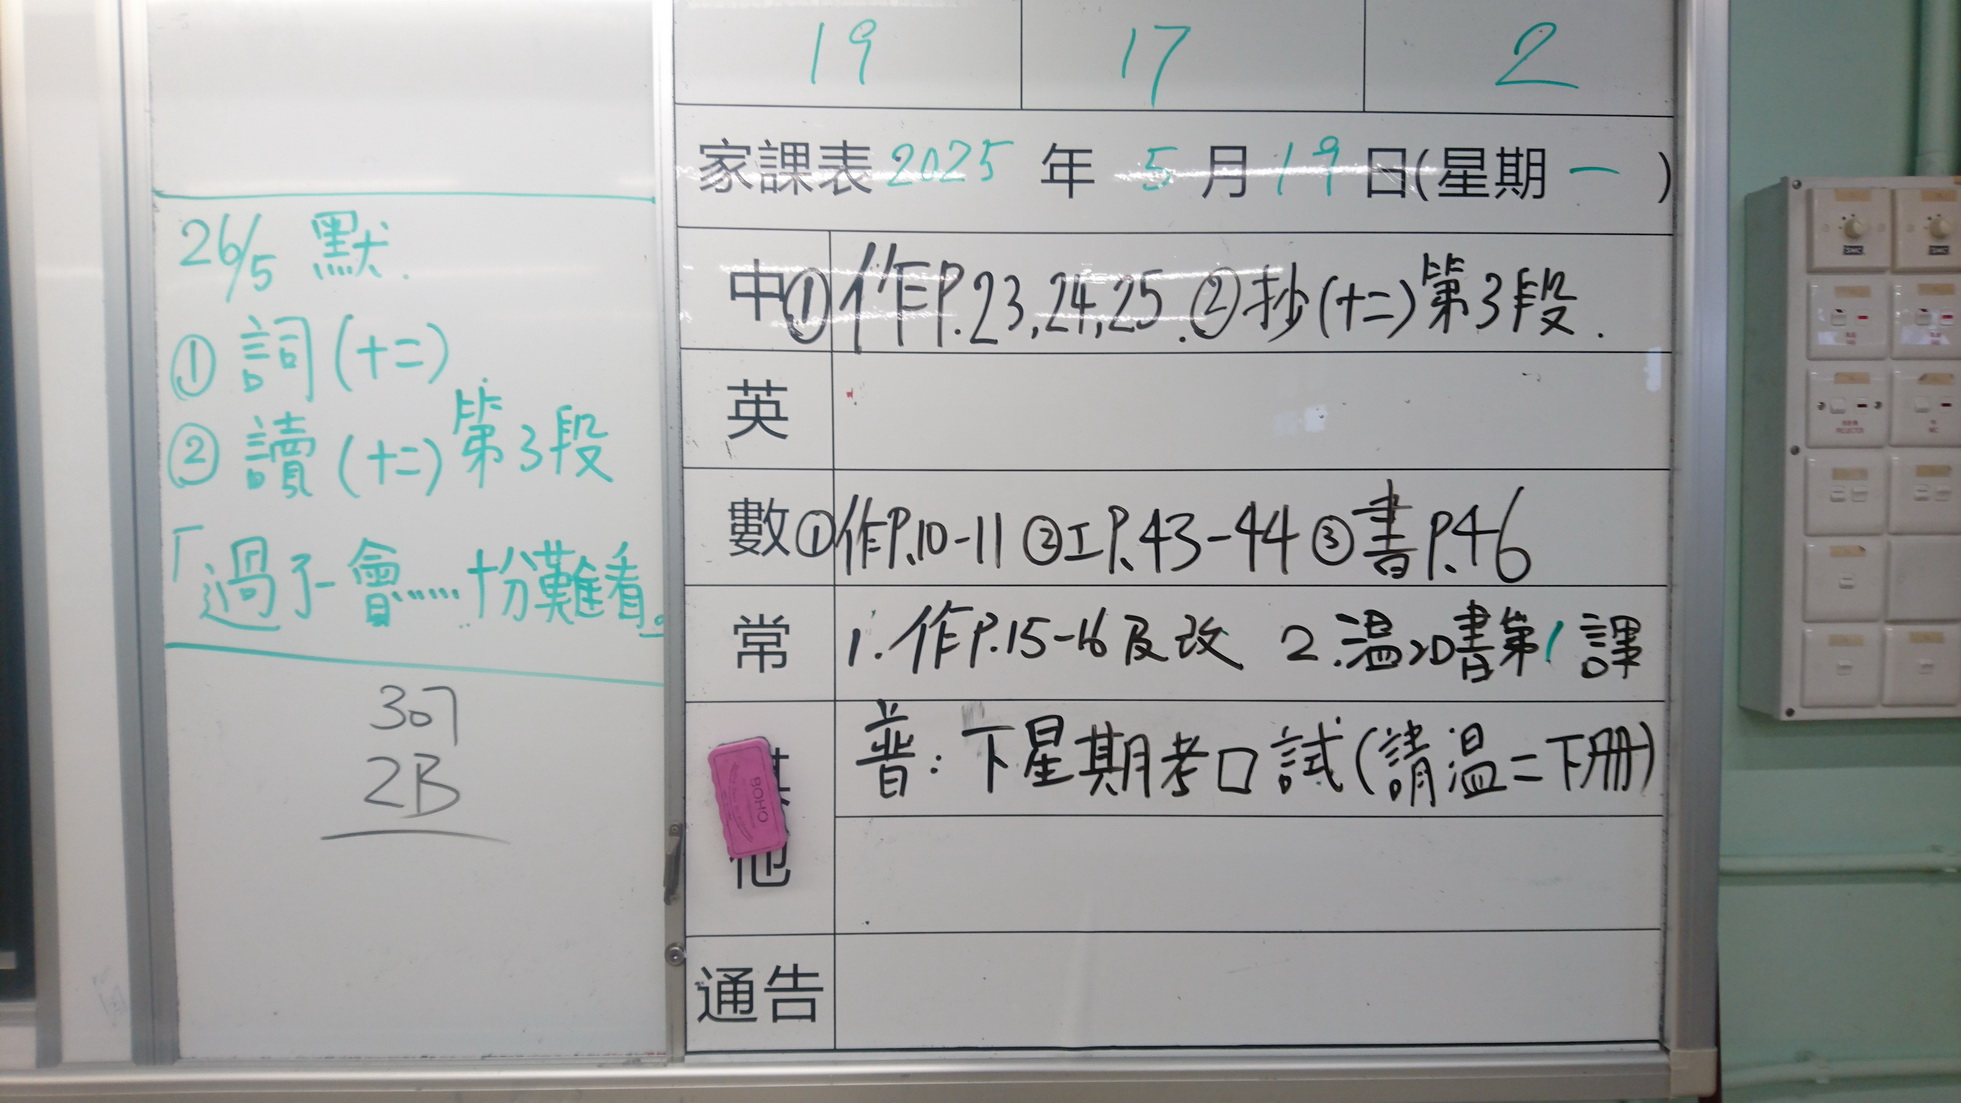 19 17 2
家課表 2025 年 5 月 19 日(星期 一 )
中 ①作P.23,24,25.②抄(十二)第3段.
英
數 ①作P.10-11 ②工P.43-44 ③書P.46
常 1.作P.15-16及改 2.温2D書第1課
其他 普:下星期考口試(請温二下冊)
通告
26/5 默.
①詞(十二)
②讀(十二)第3段
「過了一會……十份難看。」
307
2B
BOHO